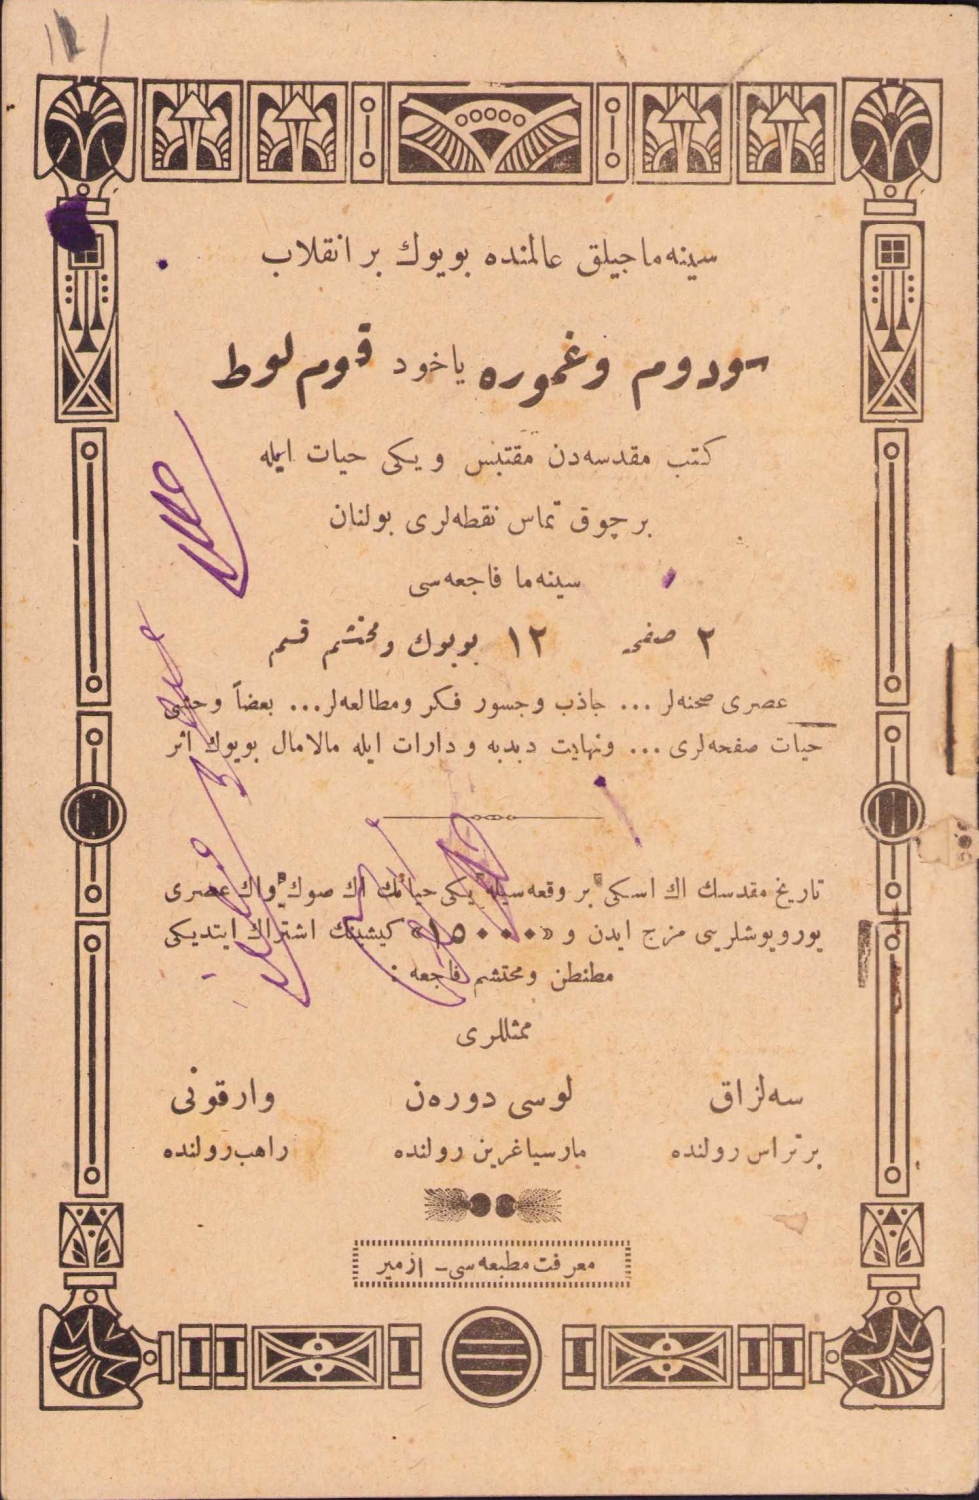 سینه‌ماجیلق عالمنده بویوك بر انقلاب
سودوم وغموره یاخود قوم لوط
كتب مقدسه‌دن مقتبس ویكی حیات ایله
برچوق تماس نقطه‌لری بولنان
سینه‌ما فاجعه‌سی
۲ صفحه ۱۲ بویوك ومحتشم قسم
عصری صحنه‌لر ... جاذب وجسور فكر ومطالعه‌لر... بعضاً وحشی
حیات صفحه‌لری ... ونهایت دبدبه و دارات ایله مالامال بویوك اثر
تاریخ مقدسك اك اسكی بر وقعه‌سیله یكی حیاتك اك صوك واك عصری
یورویوشلرینی مزج ایدن و «۱۵۰۰۰» كیشینك اشتراك ایتدیكی
مطنطن ومحتشم فاجعه :
ممثللری
سه‌لزاق لوسی دوره‌ن وارقونی
برتراس رولنده مارسیاغرین رولنده راهب رولنده
معرفت مطبعه‌سی - ازمیر